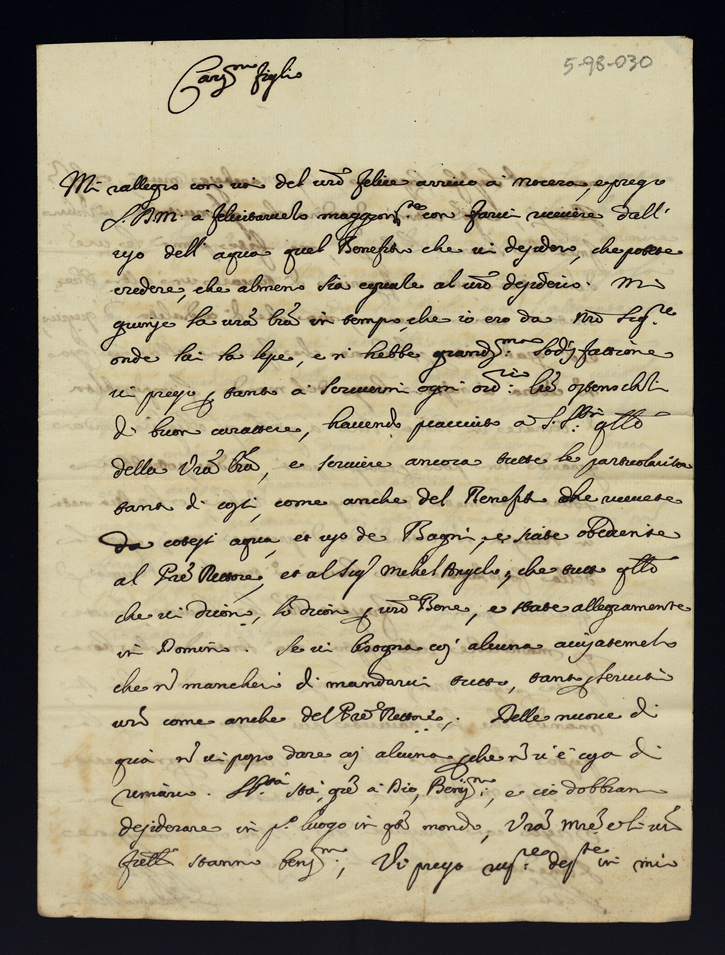 5-98-030
Car.mo figlio
Mi rallegro con voi del vrõ felice arrivo à Nocera, e prego
S. D. M. à felicitarvelo maggiorm.te con farvi ricevere dall'
uso dell'aqua quel Benefitio che vi desidero, che potete
credere, che almeno sia eguale al vrõ desiderio. Mi
giunse la vrã lrã in tempo, che io ero da Nrõ Sig.re
onde lui la lesse, e vi hebbe grandiss.ma sodisfattione
vi prego tanto à scrivermi ogni ord.rio
di buon carattere, havendo piacciuto à S. S.tà qllõ
della vrã lrã, e scrivere ancora tutte le particolarità
tanto di costì, come anche del Benefitio che ricevete
da cotest' aqua, et uso de Bagni, e siate obediente
al Prẽ Rettore, et al Sig.r Michel Angelo, che tutto qllõ
che vi dicon, lo dicon p vrõ Bene, e state allegramente
in Domino. Se vi bisogna cos' alcuna avisatemelo
che nõ mancherò di mandarvi tutto, tanto p servitio
vrõ come anche del Prẽ Rettore. Delle nuove di
quà nõ vi posso dare cos' alcuna, che nõ vi è cosa di
rimarco. S. S.tà stà, grẽ à Dio, Beniss.mo, e ciò dobbiam
desiderare in p.o luogo in qto mondo, vrã Mrẽ e li vrĩ
frelli stanno beniss.mo, Vi prego
in mio